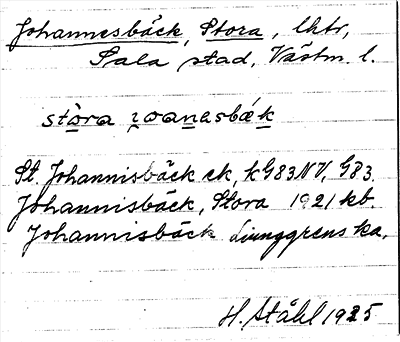 Johannesbäck, Stora, lhtr,
Sala stad, Västm. l.
stòra ɪoanesbǽk
St. Johannisbäck ek, kG83NV, G83.
Johannisbäck, Stora 1921 kb.
Johannisbäck Ljunggrens ka.
H. Ståhl 1925